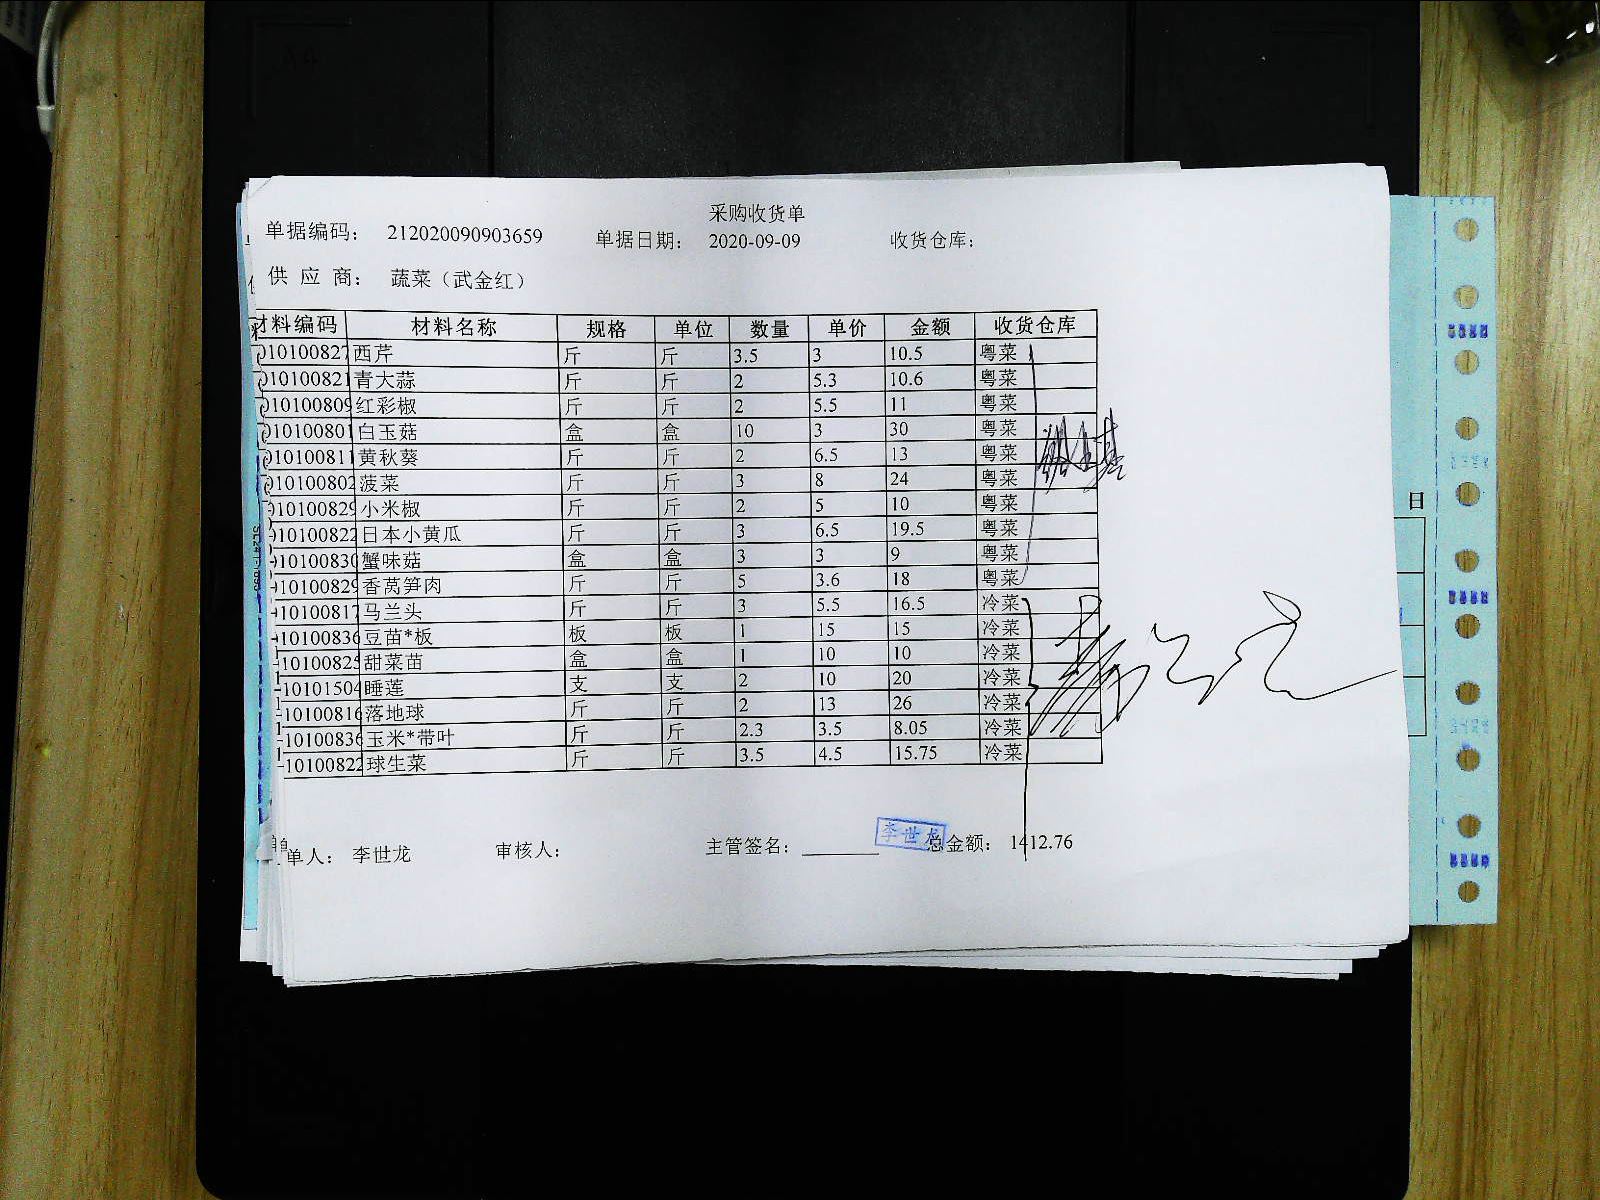 采购收货单
单据编码: 212020090903659 单据日期: 2020-09-09 收货仓库:
供 应 商: 蔬菜（武金红）
材料编码 材料名称 规格 单位 数量 单价 金额 收货仓库
010100827 西芹 斤 斤 3.5 3 10.5 粤菜
010100821 青大蒜 斤 斤 2 5.3 10.6 粤菜
010100809 红彩椒 斤 斤 2 5.5 11 粤菜
010100801 白玉菇 盒 盒 10 3 30 粤菜
010100811 黄秋葵 斤 斤 2 6.5 13 粤菜
010100802 菠菜 斤 斤 3 8 24 粤菜
10100829 小米椒 斤 斤 2 5 10 粤菜
10100822 日本小黄瓜 斤 斤 3 6.5 19.5 粤菜
10100830 蟹味菇 盒 盒 3 3 9 粤菜
10100829 香莴笋肉 斤 斤 5 3.6 18 粤菜
10100817 马兰头 斤 斤 3 5.5 16.5 冷菜
10100836 豆苗*板 板 板 1 15 15 冷菜
10100825 甜菜苗 盒 盒 1 10 10 冷菜
10101504 睡莲 支 支 2 10 20 冷菜
10100816 落地球 斤 斤 2 13 26 冷菜
10100836 玉米*带叶 斤 斤 2.3 3.5 8.05 冷菜
10100822 球生菜 斤 斤 3.5 4.5 15.75 冷菜
单人: 李世龙 审核人: 主管签名: 李世龙 总金额: 1412.76
日